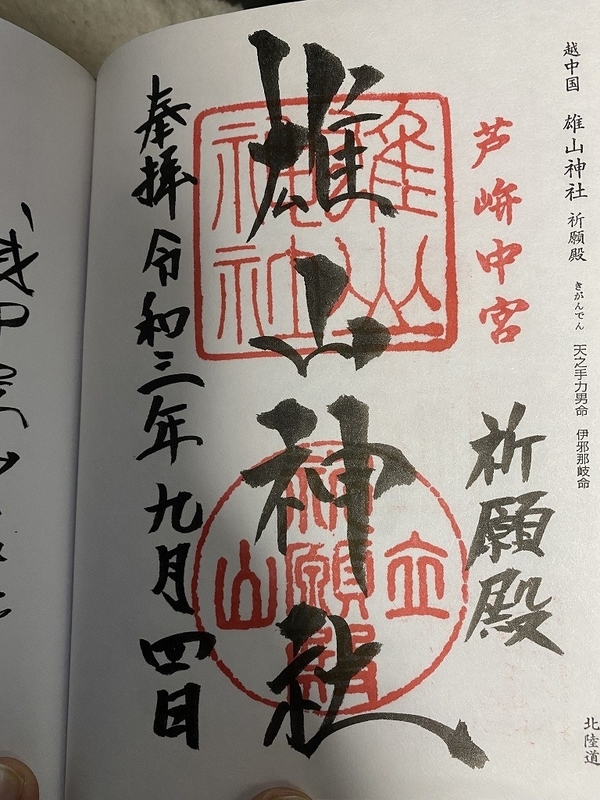 越中国 雄山神社 祈願殿 きがんでん 天之手力男命 伊邪那岐命
北陸道
芦峅中宮
祈願殿
雄山神社
雄山神社
立山
祈願殿
奉拝 令和三年九月四日